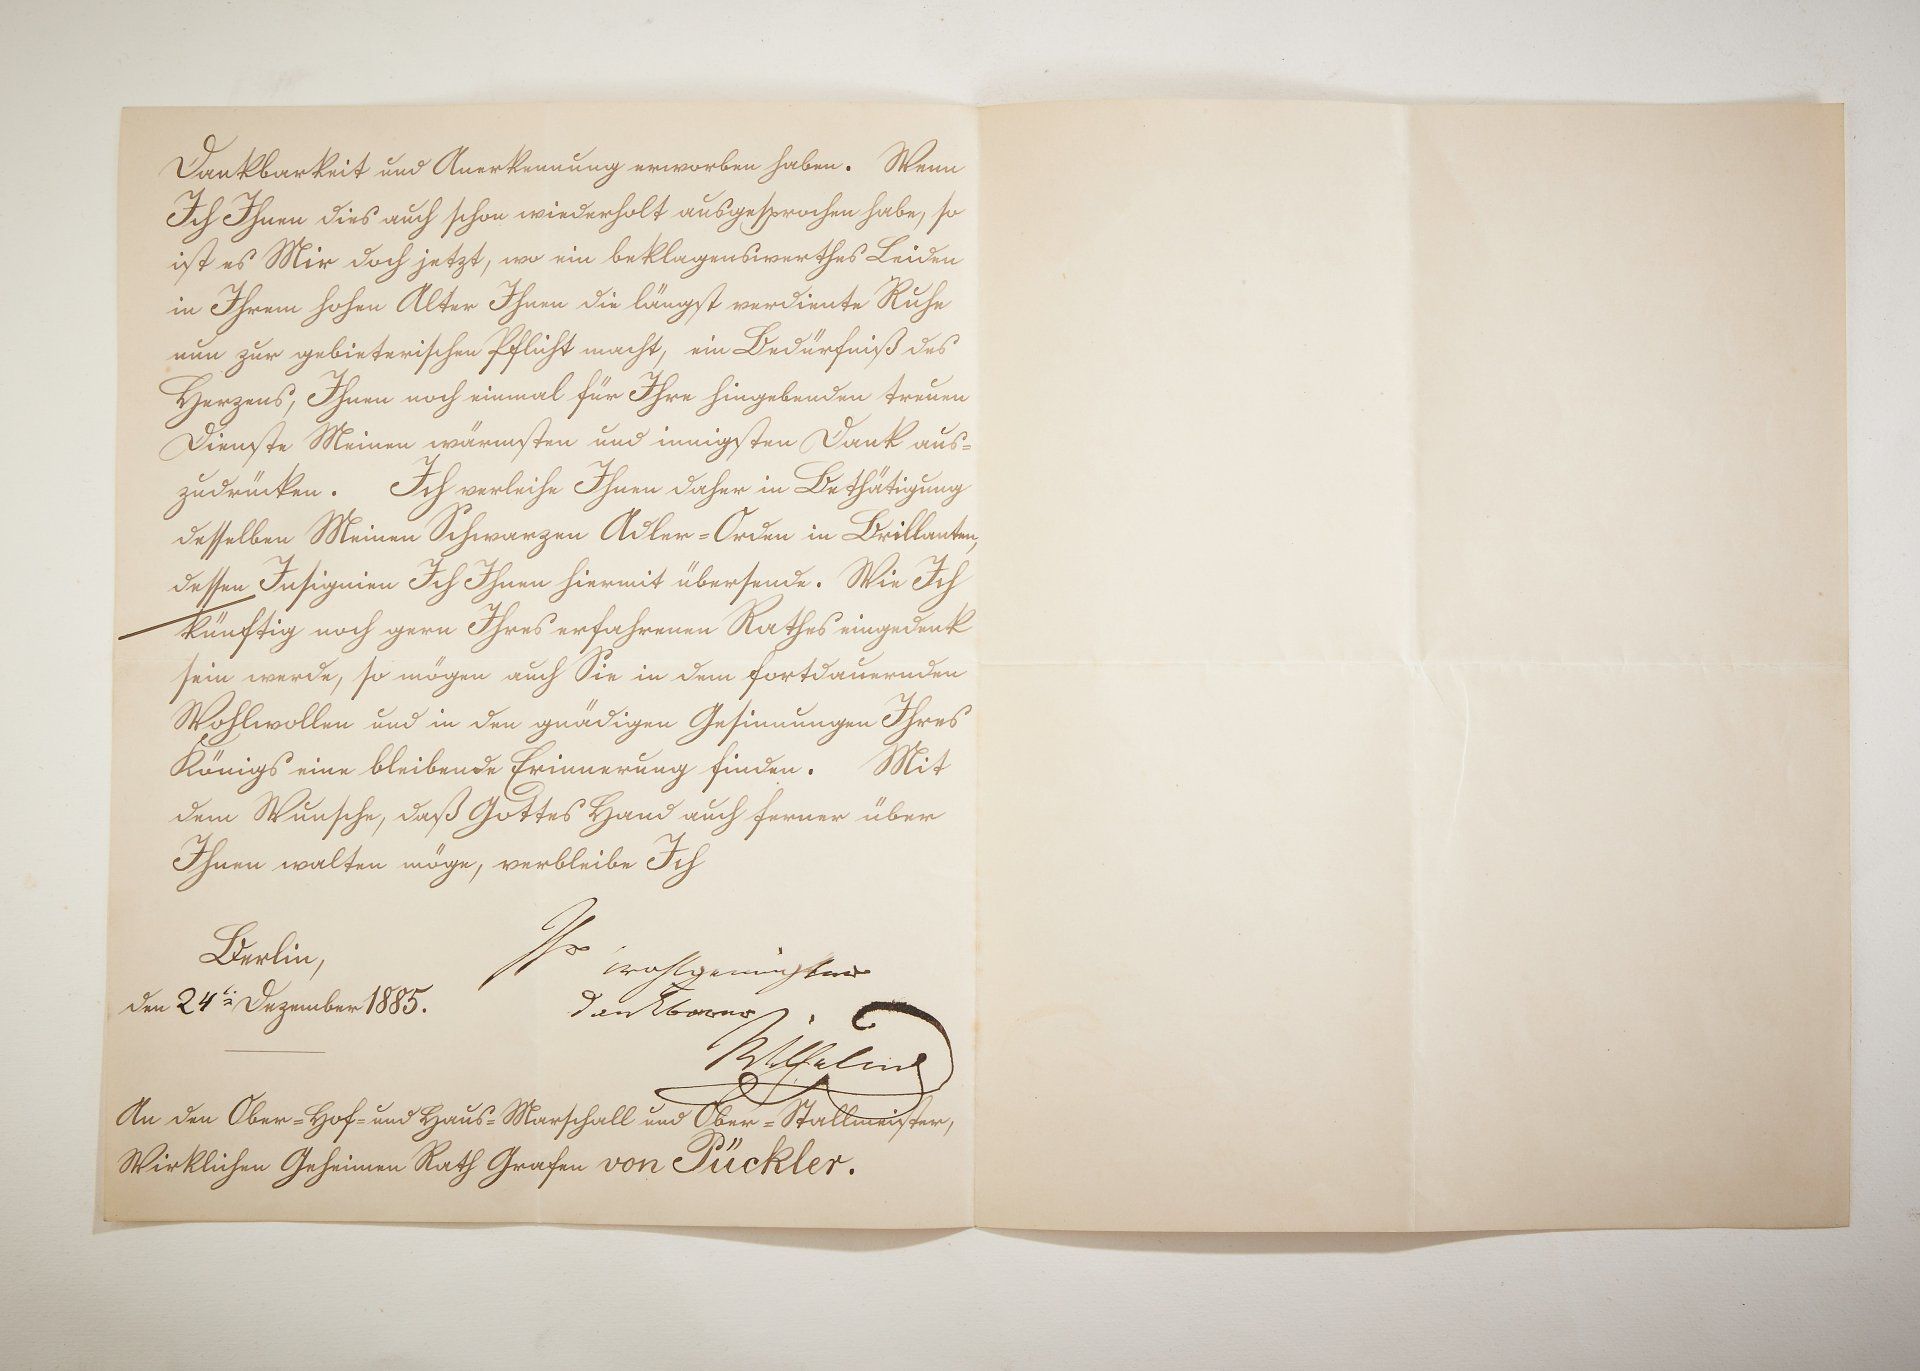 Dankbarkeit und Anerkennung erworben haben. Wenn
Ich Ihnen dies auch schon wiederholt ausgesprochen habe, so
ist es Mir doch jetzt, wo ein beklagenswerthes Leiden
in Ihrem hohen Alter Ihnen die längst verdiente Ruhe
nun zur gebieterischen Pflicht macht, ein Bedürfniß des
Herzens, Ihnen noch einmal für Ihre hingebenden treuen
Dienste Meinen wärmsten und innigsten Dank aus=
zudrücken. Ich verleihe Ihnen daher in Bethätigung
desselben Meinen Schwarzen Adler=Orden in Brillanten,
dessen Insignien Ich Ihnen hiermit übersende. Wie Ich
künftig noch gern Ihres erfahrenen Rathes eingedenk
sein werde, so mögen auch Sie in dem fortdauernden
Wohlwollen und in den gnädigen Gesinnungen Ihres
Königs eine bleibende Erinnerung finden. Mit
dem Wunsche, daß Gottes Hand auch ferner über
Ihnen walten möge, verbleibe Ich
Ihr wohlgeneigter
dankbarer
Wilhelm
Berlin,
den 24ten Dezember 1885.
An den Ober=Hof= und Haus=Marschall und Ober=Stallmeister,
Wirklichen Geheimen Rath Grafen von Pückler.